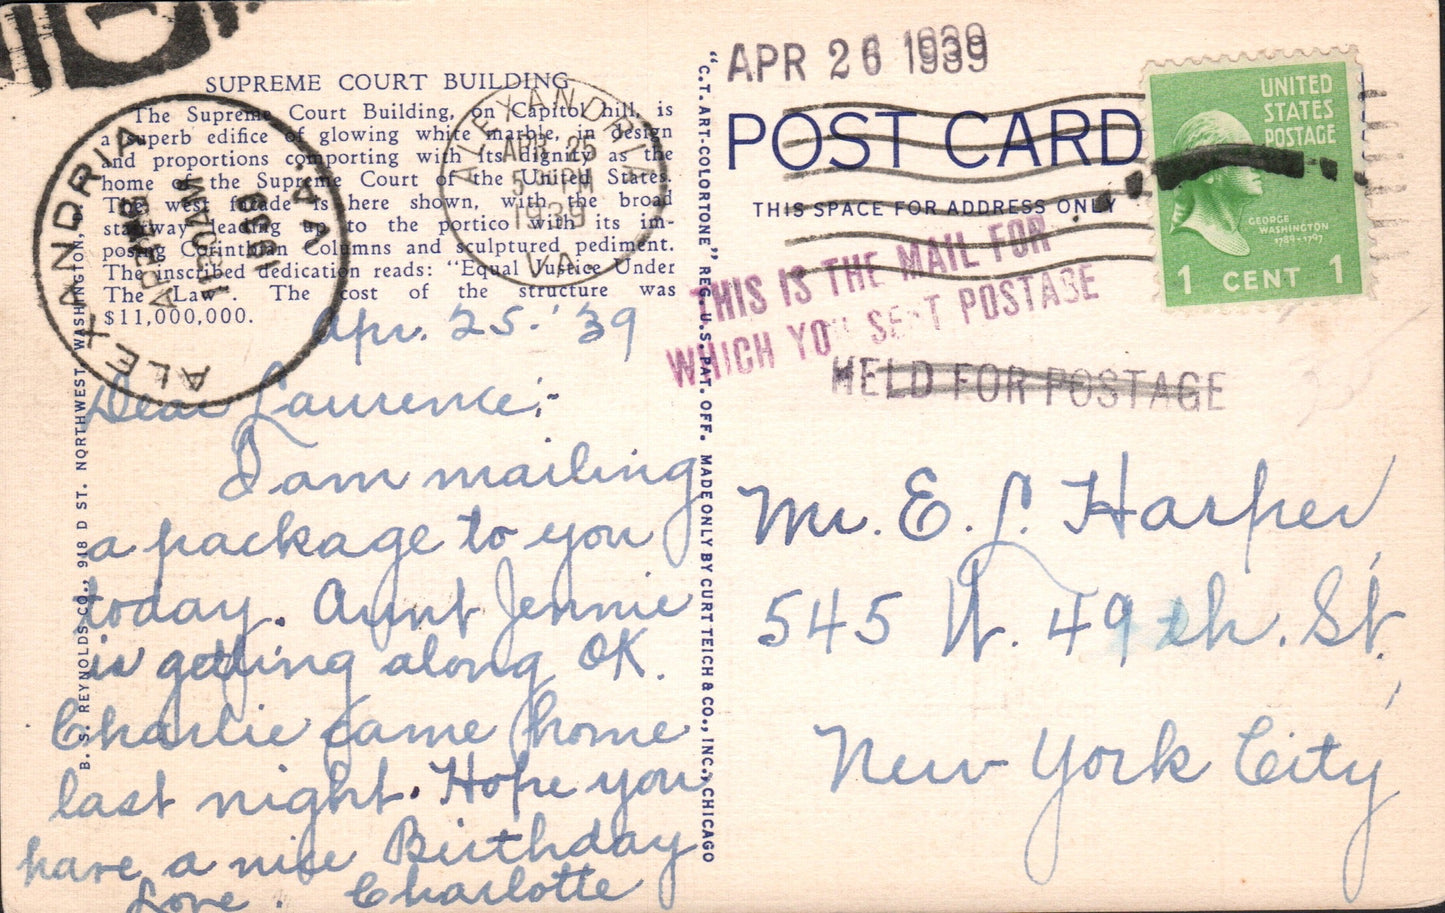 SUPREME COURT BUILDING
The Supreme Court Building, on Capitol hill, is
a superb edifice of glowing white marble, in design
and proportions comporting with its dignity as the
home of the Supreme Court of the United States.
The west facade is here shown, with the broad
stairway leading up to the portico with its im-
posing Corinthian Columns and sculptured pediment.
The inscribed dedication reads: "Equal Justice Under
The Law". The cost of the structure was
$11,000,000.
ALEXANDRIA VA.
APR 26
11 AM
1939
ALEXANDRIA
APR 25
5 PM
1939
VA.
Apr. 25.'39
Dear Laurence:-
I am mailing
a package to you
today. Aunt Jennie
is getting along OK.
Charlie came home
last night. Hope you
have a nice Birthday
Love. Charlotte
B. S. REYNOLDS CO., 918 D ST. NORTHWEST, WASHINGTON,
"C.T. ART-COLORTONE" REG. U.S. PAT. OFF. MADE ONLY BY CURT TEICH & CO., INC., CHICAGO
APR 26 1939
POST CARD
THIS SPACE FOR ADDRESS ONLY
THIS IS THE MAIL FOR
WHICH YOU SENT POSTAGE
HELD FOR POSTAGE
UNITED
STATES
POSTAGE
GEORGE
WASHINGTON
1789-1797
1 CENT 1
Mr. E. L. Harper,
545 W. 49th. St.,
New York City,